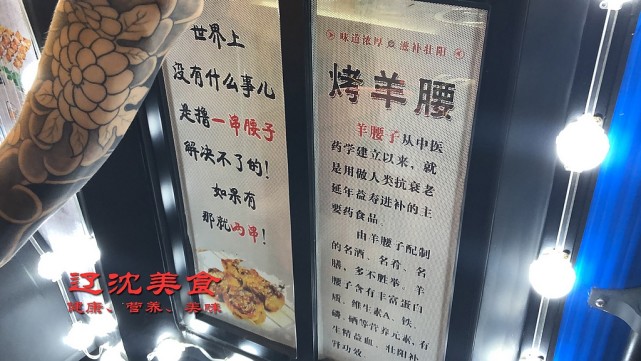 世界上
没有什么事儿
是撸一串腰子
解决不了的!
如果有
那就两串!
味道浓厚 滋补壮阳
烤羊腰
羊腰子从中医
药学建立以来,就
是用做人类抗衰老
延年益寿进补的主
要药食品。
由羊腰子配制
的名酒、名肴、名
膳,多不胜举,羊
腰子含有丰富蛋白
质、维生素A、铁、
磷、硒等营养元素,有
生精益血、壮阳补
肾功效。
辽沈美食
健康、营养、美味